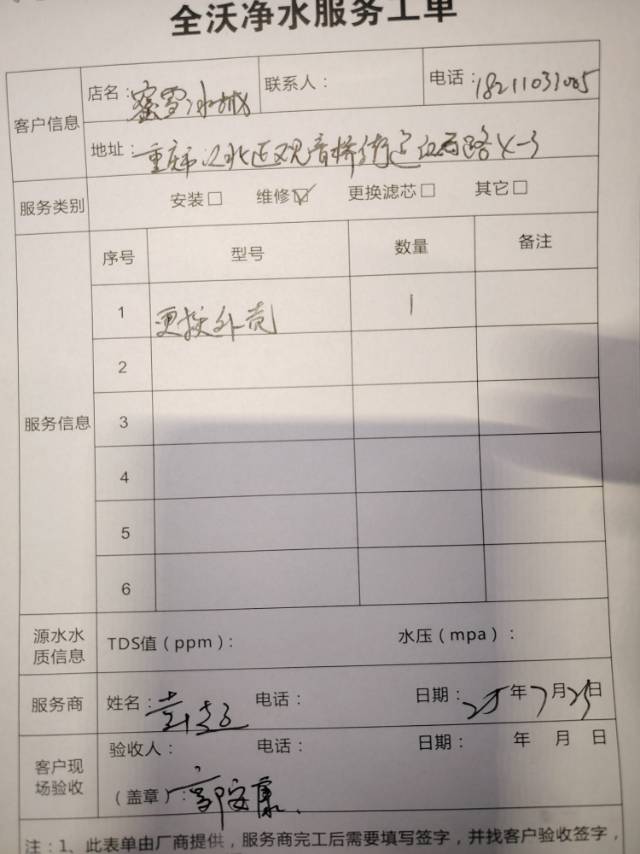 全沃净水服务工单
客户信息
店名：蜜雪冰城 联系人： 电话：18211031005
地址：重庆市江北区观音桥街道红石路4-3
服务类别 安装□ 维修☑ 更换滤芯□ 其它□
服务信息
序号 型号 数量 备注
1 更换外壳 1
2
3
4
5
6
源水水质信息 TDS值（ppm）： 水压（mpa）：
服务商 姓名： 电话： 日期：25年7月25日
客户现场验收 验收人： 电话： 日期： 年 月 日
（盖章）：
注：1、此表单由厂商提供，服务商完工后需要填写签字，并找客户验收签字，